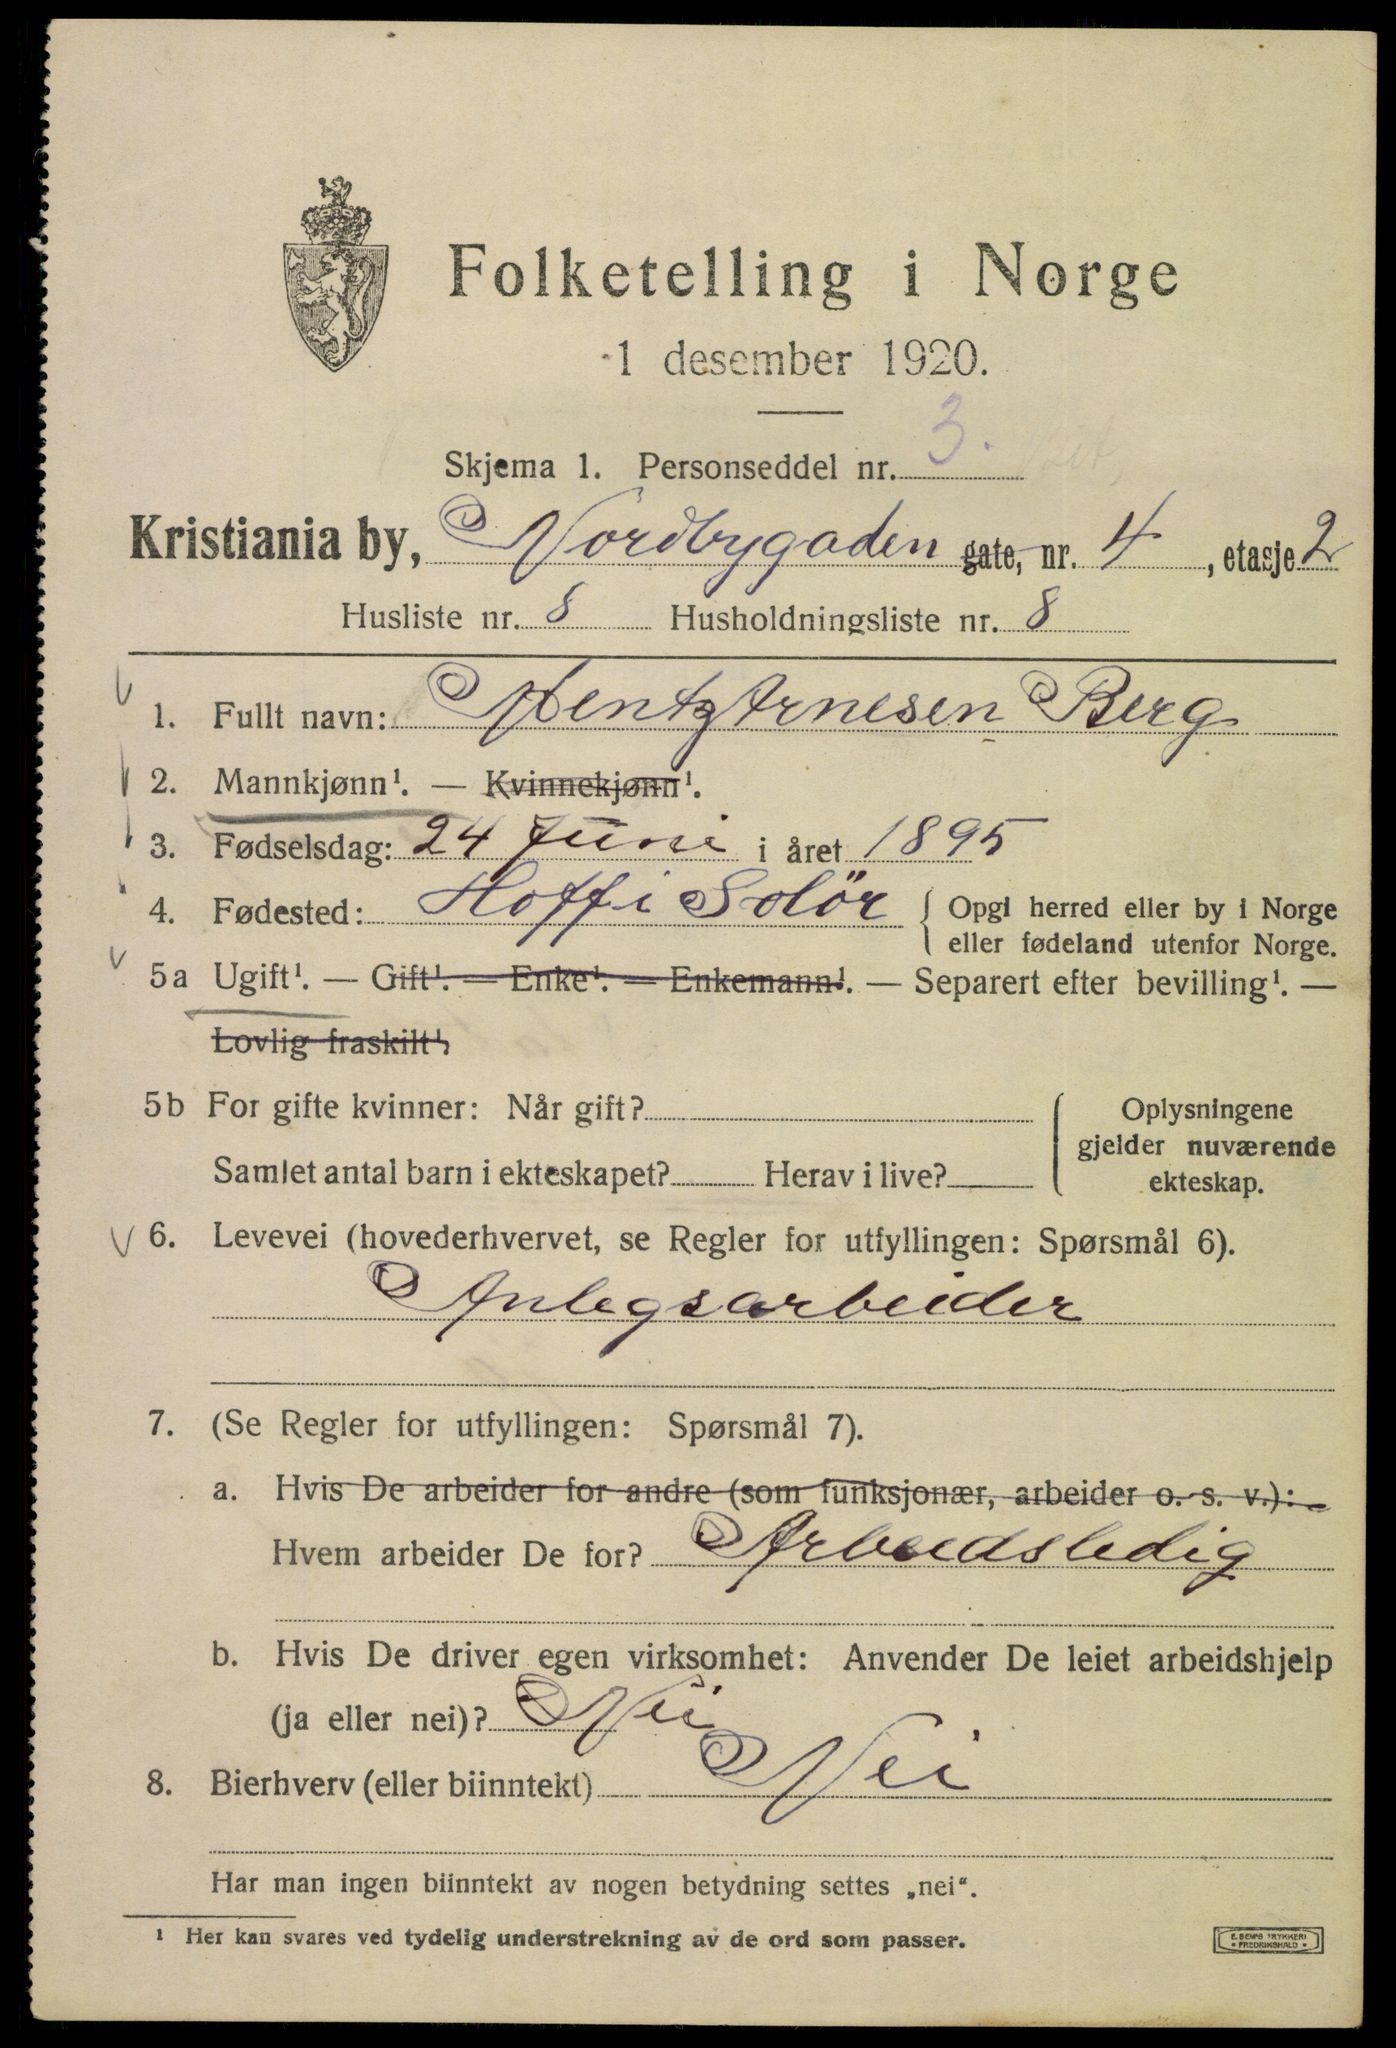 Folketelling i Norge
1 desember 1920.
Skjema 1. Personseddel nr. 3.
Kristiania by, Nordbygaden gate, nr. 4, etasje 2
Husliste nr. 8 Husholdningsliste nr. 8
1. Fullt navn: Mentz Arnesen Berg
2. Mannkjønn¹. — Kvinnekjønn¹.
3. Fødselsdag: 24 Juni i året 1895
4. Fødested: Hoff i Solör { Opgi herred eller by i Norge
eller fødeland utenfor Norge.
5a Ugift¹. — Gift¹. — Enke¹. — Enkemann¹. — Separert efter bevilling¹. —
Lovlig fraskilt¹.
5b For gifte kvinner: Når gift? { Oplysningene
gjelder nuværende
Samlet antal barn i ekteskapet? Herav i live? ekteskap.
6. Levevei (hovederhvervet, se Regler for utfyllingen: Spørsmål 6).
Anlegsarbeider
7. (Se Regler for utfyllingen: Spørsmål 7).
a. Hvis De arbeider for andre (som funksjonær, arbeider o. s. v.):
Hvem arbeider De for? Arbeidsledig
b. Hvis De driver egen virksomhet: Anvender De leiet arbeidshjelp
(ja eller nei)? Nei
8. Bierhverv (eller biinntekt) Nei
Har man ingen biinntekt av nogen betydning settes „nei“.
¹ Her kan svares ved tydelig understrekning av de ord som passer.
E. SEM'S TRYKKERI
• FREDRIKSHALD •